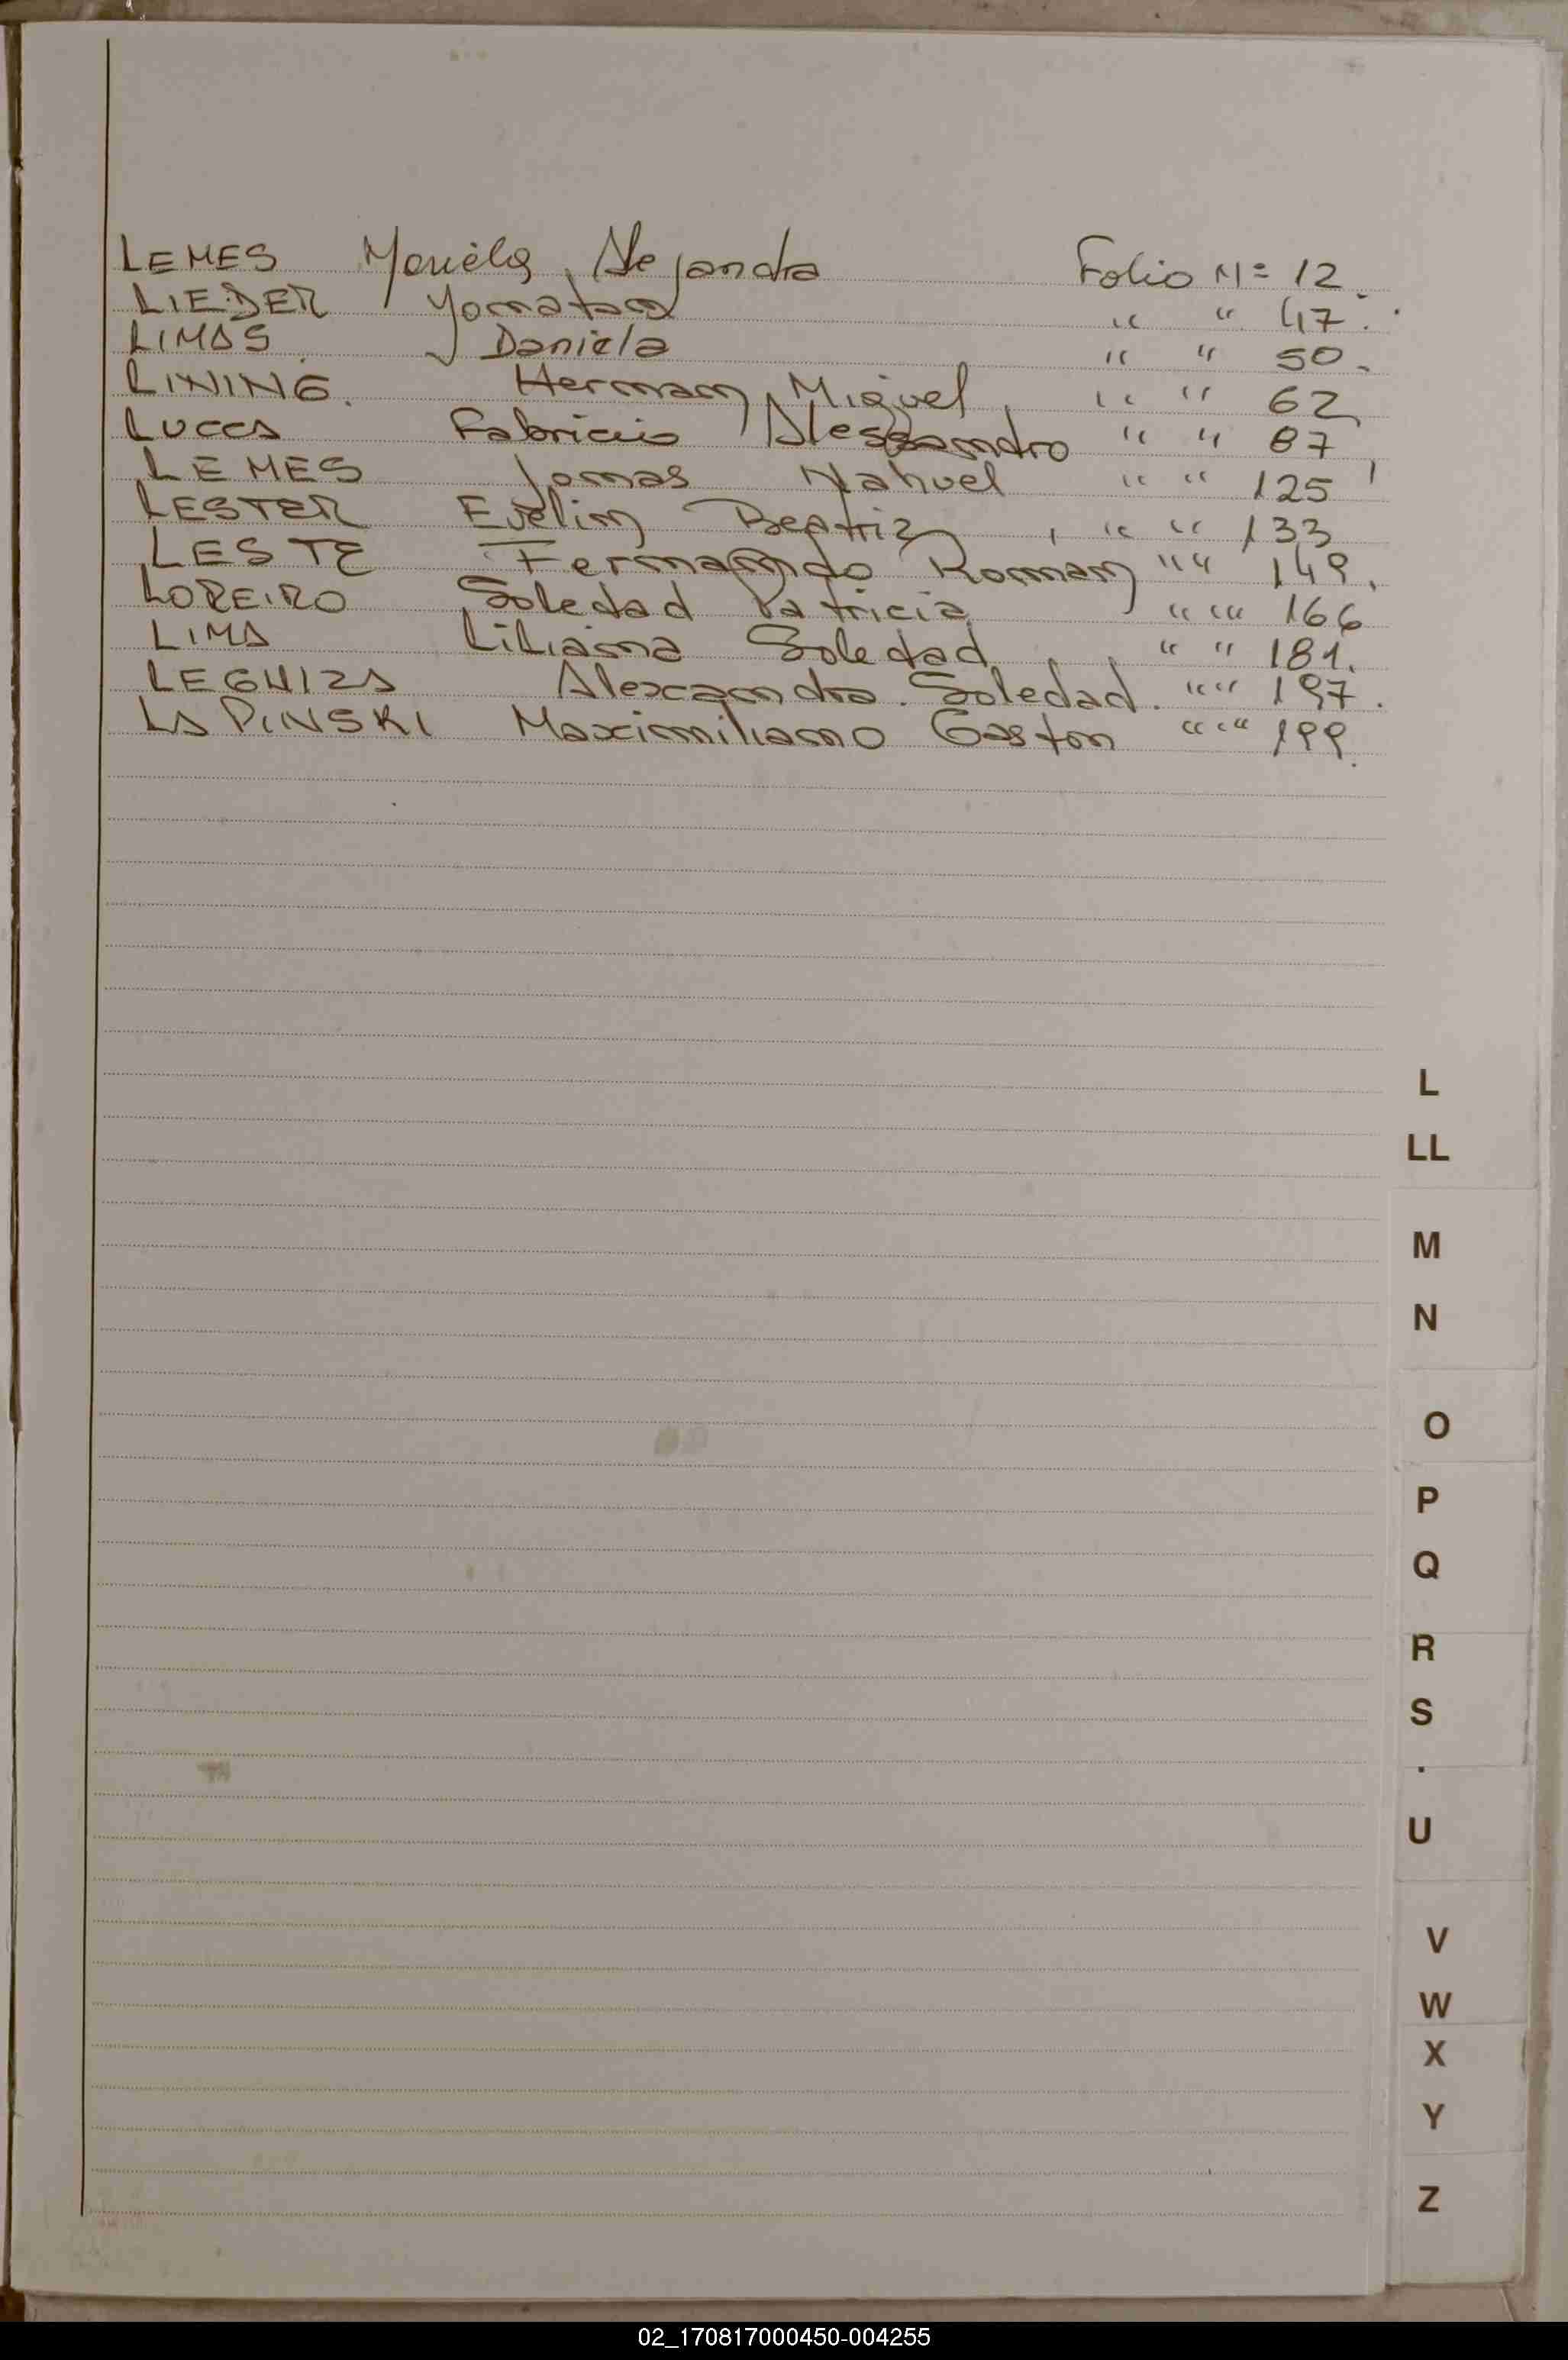 LEMES Mariela Alejandra Folio Nº 12.
LIEBER Yonatan " " 47.
LIMAS Daniela " " 50.
LINING. Hernan Miguel " " 62
LUCCA Fabricio Alessandro " " 87
LEMES Jomas Nahuel " " 125
LESTER Evelin Beatriz " " 133
LESTE Fernando Roman " " 149.
LOREIRO Soledad Patricia " " 166
LIMA Liliana Soledad " " 181.
LEGUIZA Alexandra Soledad. " " 197.
LAPINSKI Maximiliano Gaston " " 199.
L
LL
M
N
O
P
Q
R
S
U
V
W
X
Y
Z
02_170817000450-004255